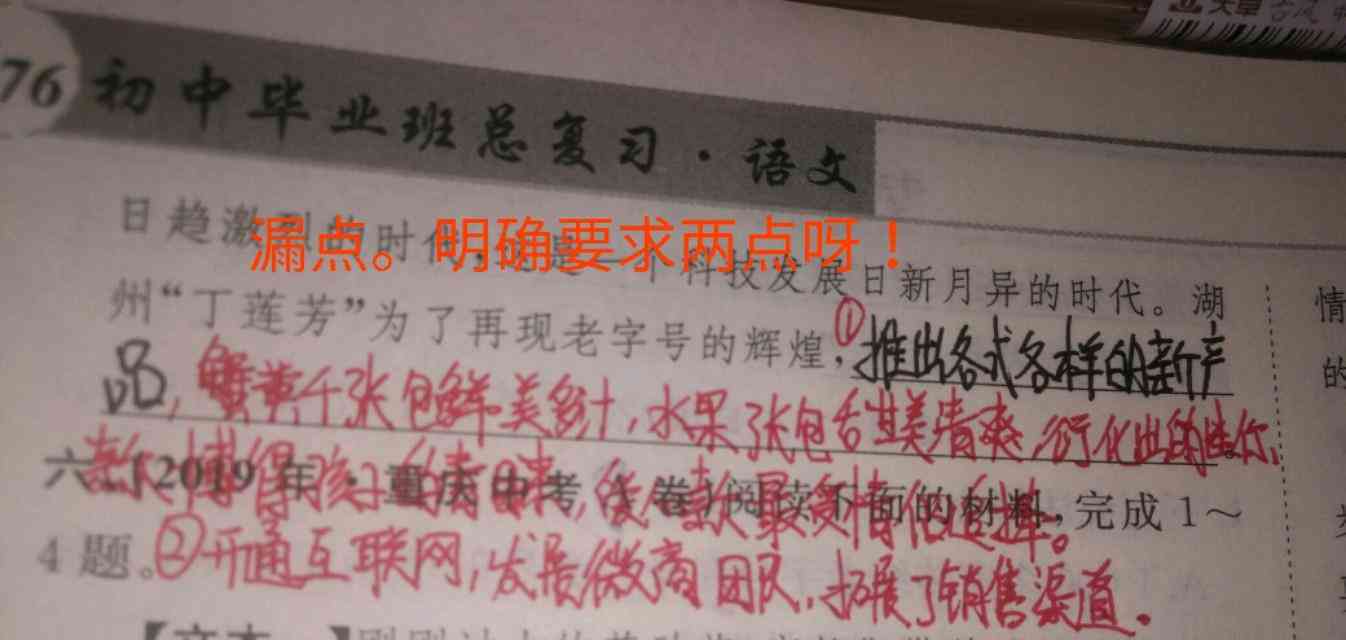 76 初中毕业班总复习·语文
日趋激烈的时代,也是一个科技发展日新月异的时代。湖
漏点。明确要求两点呀！
州“丁莲芳”为了再现老字号的辉煌,①推出各式各样的新产
品,蟹黄千张包鲜美多汁,水果张包甜美清爽,衍化出的迷你
款博得孩子的青睐,
六、(2019年·重庆中考A卷)阅读下面的材料,完成1～
款最受情侣选择。
4题。②开通互联网,发展微商团队,拓展了销售渠道。
情
的